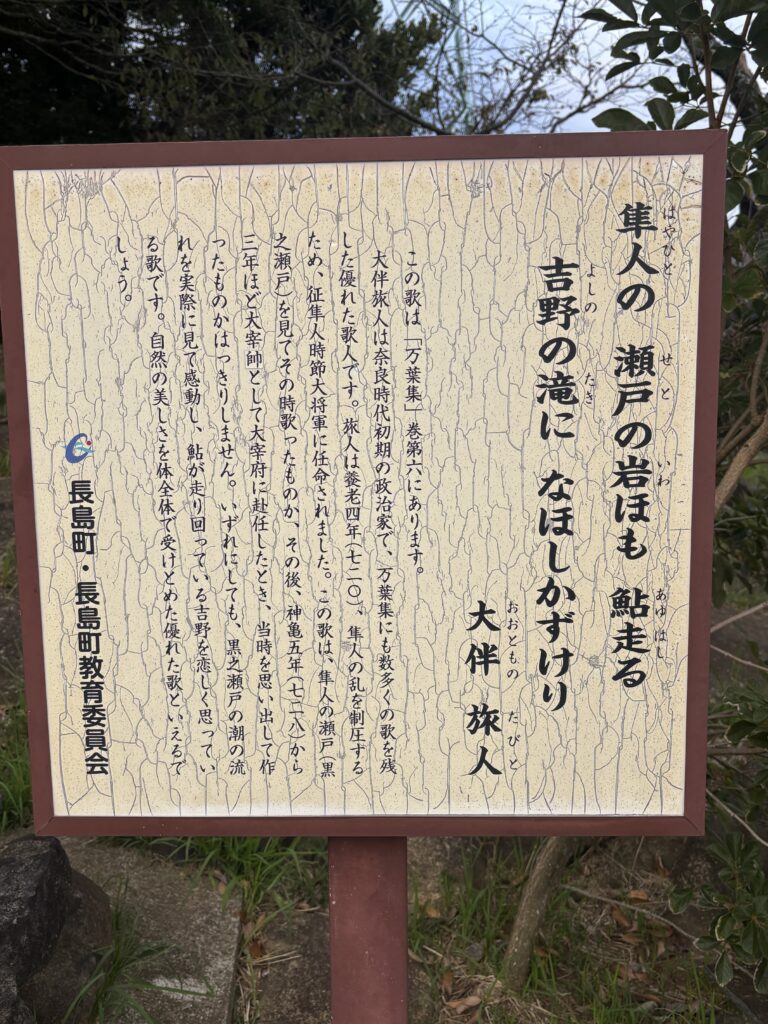 はやひと せと いわ あゆはし
隼人の 瀬戸の岩ほも 鮎走る
よしの たき
吉野の滝に なほしかずけり
おおともの たびと
大伴 旅人
この歌は「万葉集」巻第六にあります。
大伴旅人は奈良時代初期の政治家で、万葉集にも数多くの歌を残
した優れた歌人です。旅人は養老四年(七二〇)、隼人の乱を制圧する
ため、征隼人時節大将軍に任命されました。この歌は、隼人の瀬戸(黒
之瀬戸)を見てその時歌ったものか、その後、神亀五年(七二八)から
三年ほど大宰帥として大宰府に赴任したとき、当時を思い出して作
ったものかはっきりしません。いずれにしても、黒之瀬戸の潮の流
れを実際に見て感動し、鮎が走り回っている吉野を恋しく思ってい
る歌です。自然の美しさを体全体で受けとめた優れた歌といえるで
しょう。
長島町・長島町教育委員会